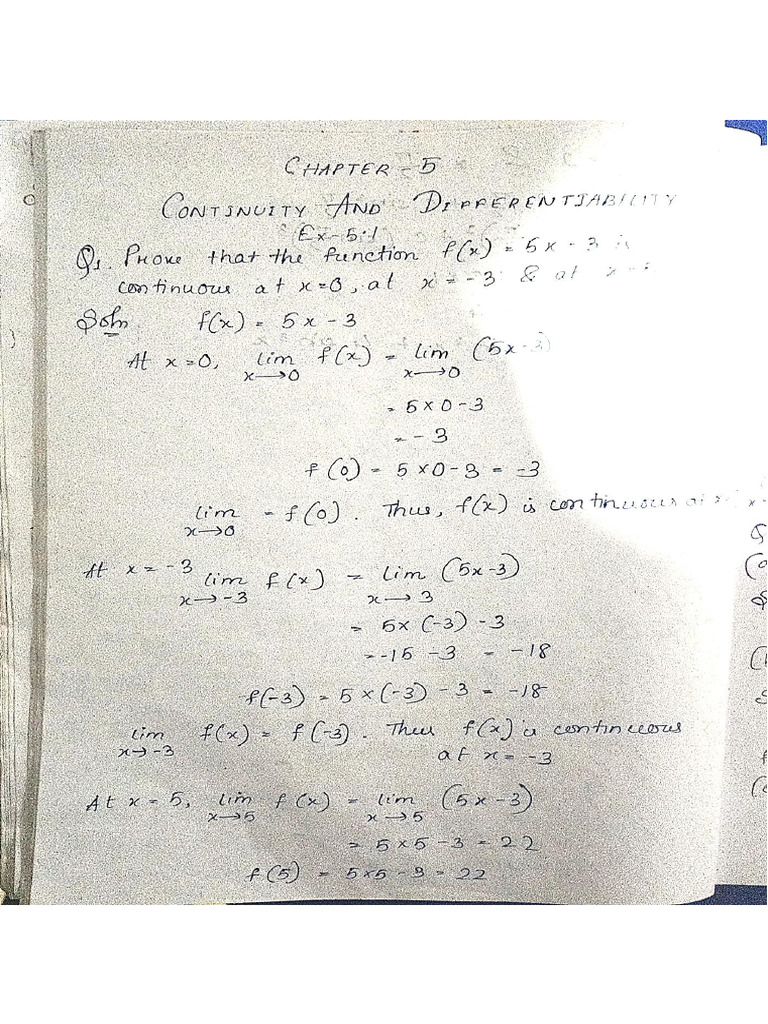 CHAPTER - 5
CONTINUITY AND DIFFERENTIABILITY
Ex-5.1
Q1. Prove that the function f(x) = 5x - 3 is
continuous at x=0, at x = -3 & at x
Soln f(x) = 5x - 3
At x=0, lim x→0 f(x) = lim x→0 (5x-3)
= 5x0-3
= -3
f(0) = 5x0-3 = -3
lim x→0 = f(0). Thus, f(x) is continuous
At x = -3 lim x→-3 f(x) = lim x→3 (5x-3)
= 5x (-3) -3
= -15 -3 = -18
f(-3) = 5x(-3) - 3 = -18
lim x→-3 f(x) = f(-3). Thus f(x) is continuous
at x = -3
At x = 5, lim x→5 f(x) = lim x→5 (5x-3)
= 5x5-3 = 22
f(5) = 5x5-3 = 22